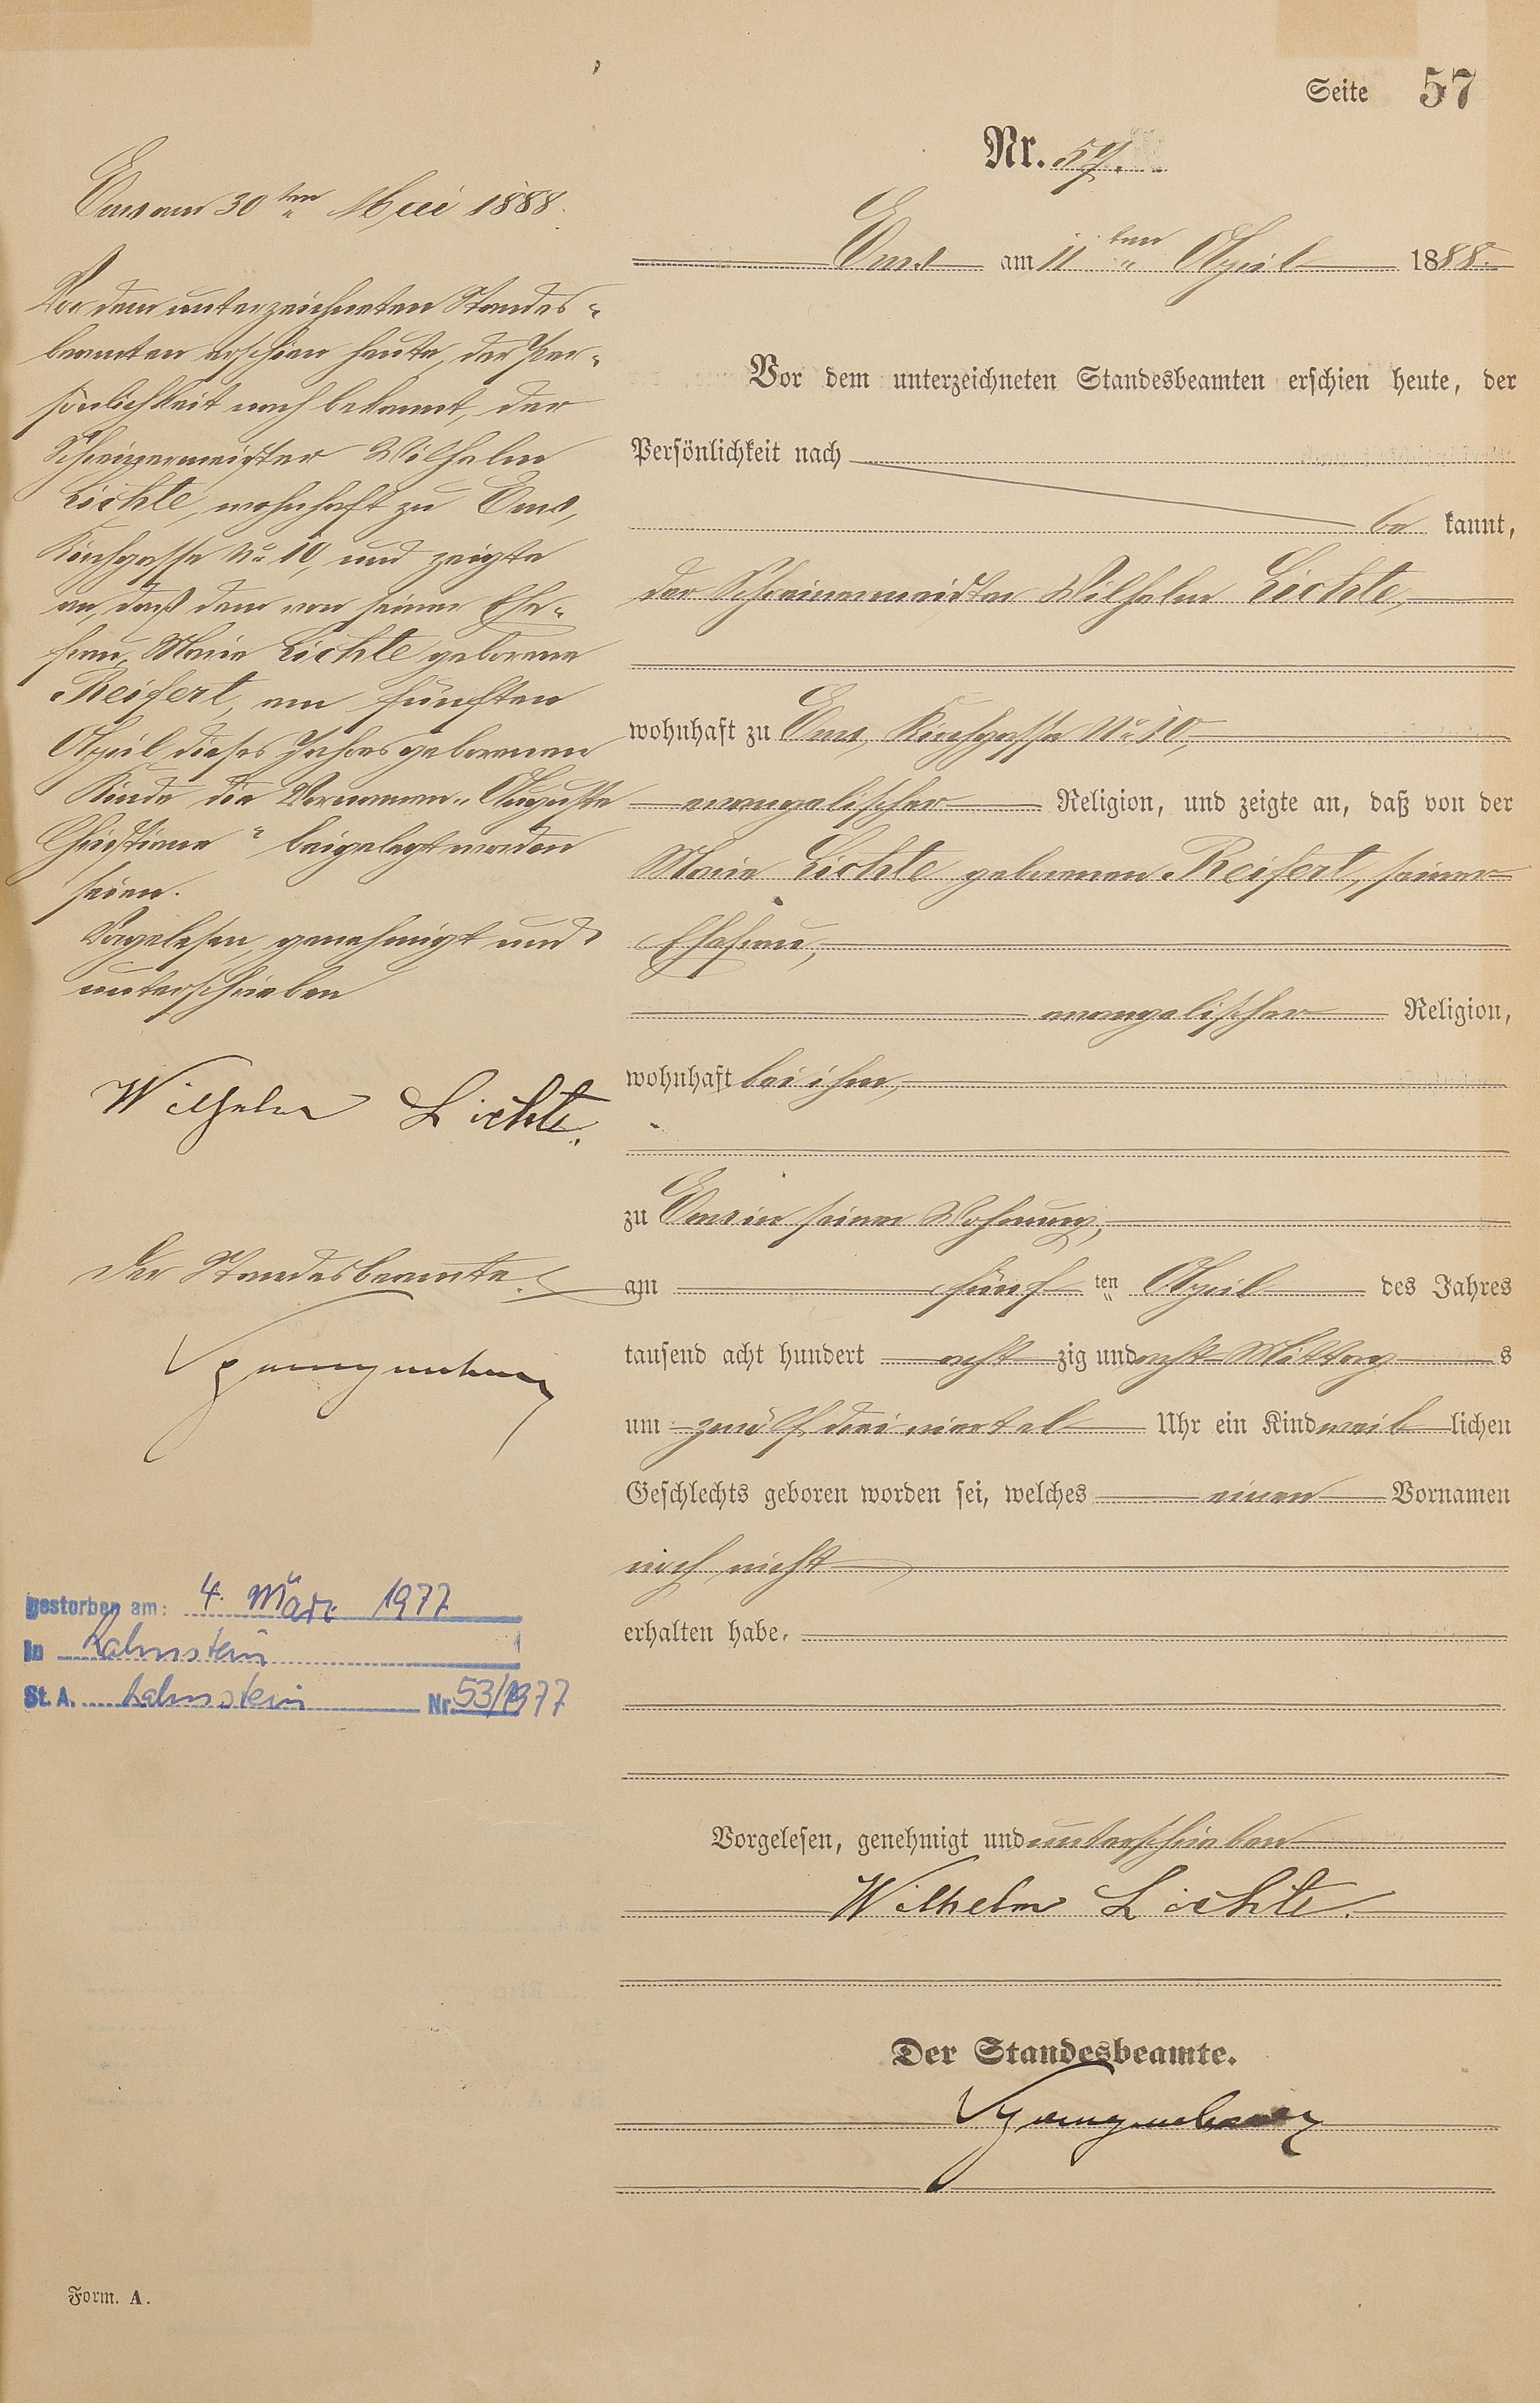 Seite 57
Nr. 57.
Ems am 11ten April 1888.
Vor dem unterzeichneten Standesbeamten erschien heute, der
Persönlichkeit nach
be kannt,
der Schreinermeister Wilhelm Lichte,
wohnhaft zu Ems, Kirchgasse No 10,
evangelischer Religion, und zeigte an, daß von der
Marie Lichte geborenen Reifert, seiner
Ehefrau,
evangelischer Religion,
wohnhaft bei ihm,
zu Ems in seiner Wohnung,
am fünf ten April des Jahres
tausend acht hundert acht zig und acht Mittag s
um zwölf drei viertel Uhr ein Kind weib lichen
Geschlechts geboren worden sei, welches einen Vornamen
noch nicht
erhalten habe.
Vorgelesen, genehmigt und unterschrieben
Wilhelm Lichte.
Der Standesbeamte.
Ems am 30ten Mai 1888.
Vor dem unterzeichneten Standes-
beamten erschien heute, der Per-
sönlichkeit nach bekannt, der
Schreinermeister Wilhelm
Lichte, wohnhaft zu Ems,
Kirchgasse No 10, und zeigte
an, daß dem von seiner Ehe-
frau, Marie Lichte geborene
Reifert, am fünften
April dieses Jahres geborenen
Kinde die Vornamen „Auguste
Christiane“ beigelegt worden
seien.
Vorgelesen, genehmigt und
unterschrieben
Wilhelm Lichte.
Der Standesbeamte.
gestorben am: 4. März 1977
in Lahnstein
St. A. Lahnstein Nr. 53/1977
Form. A.